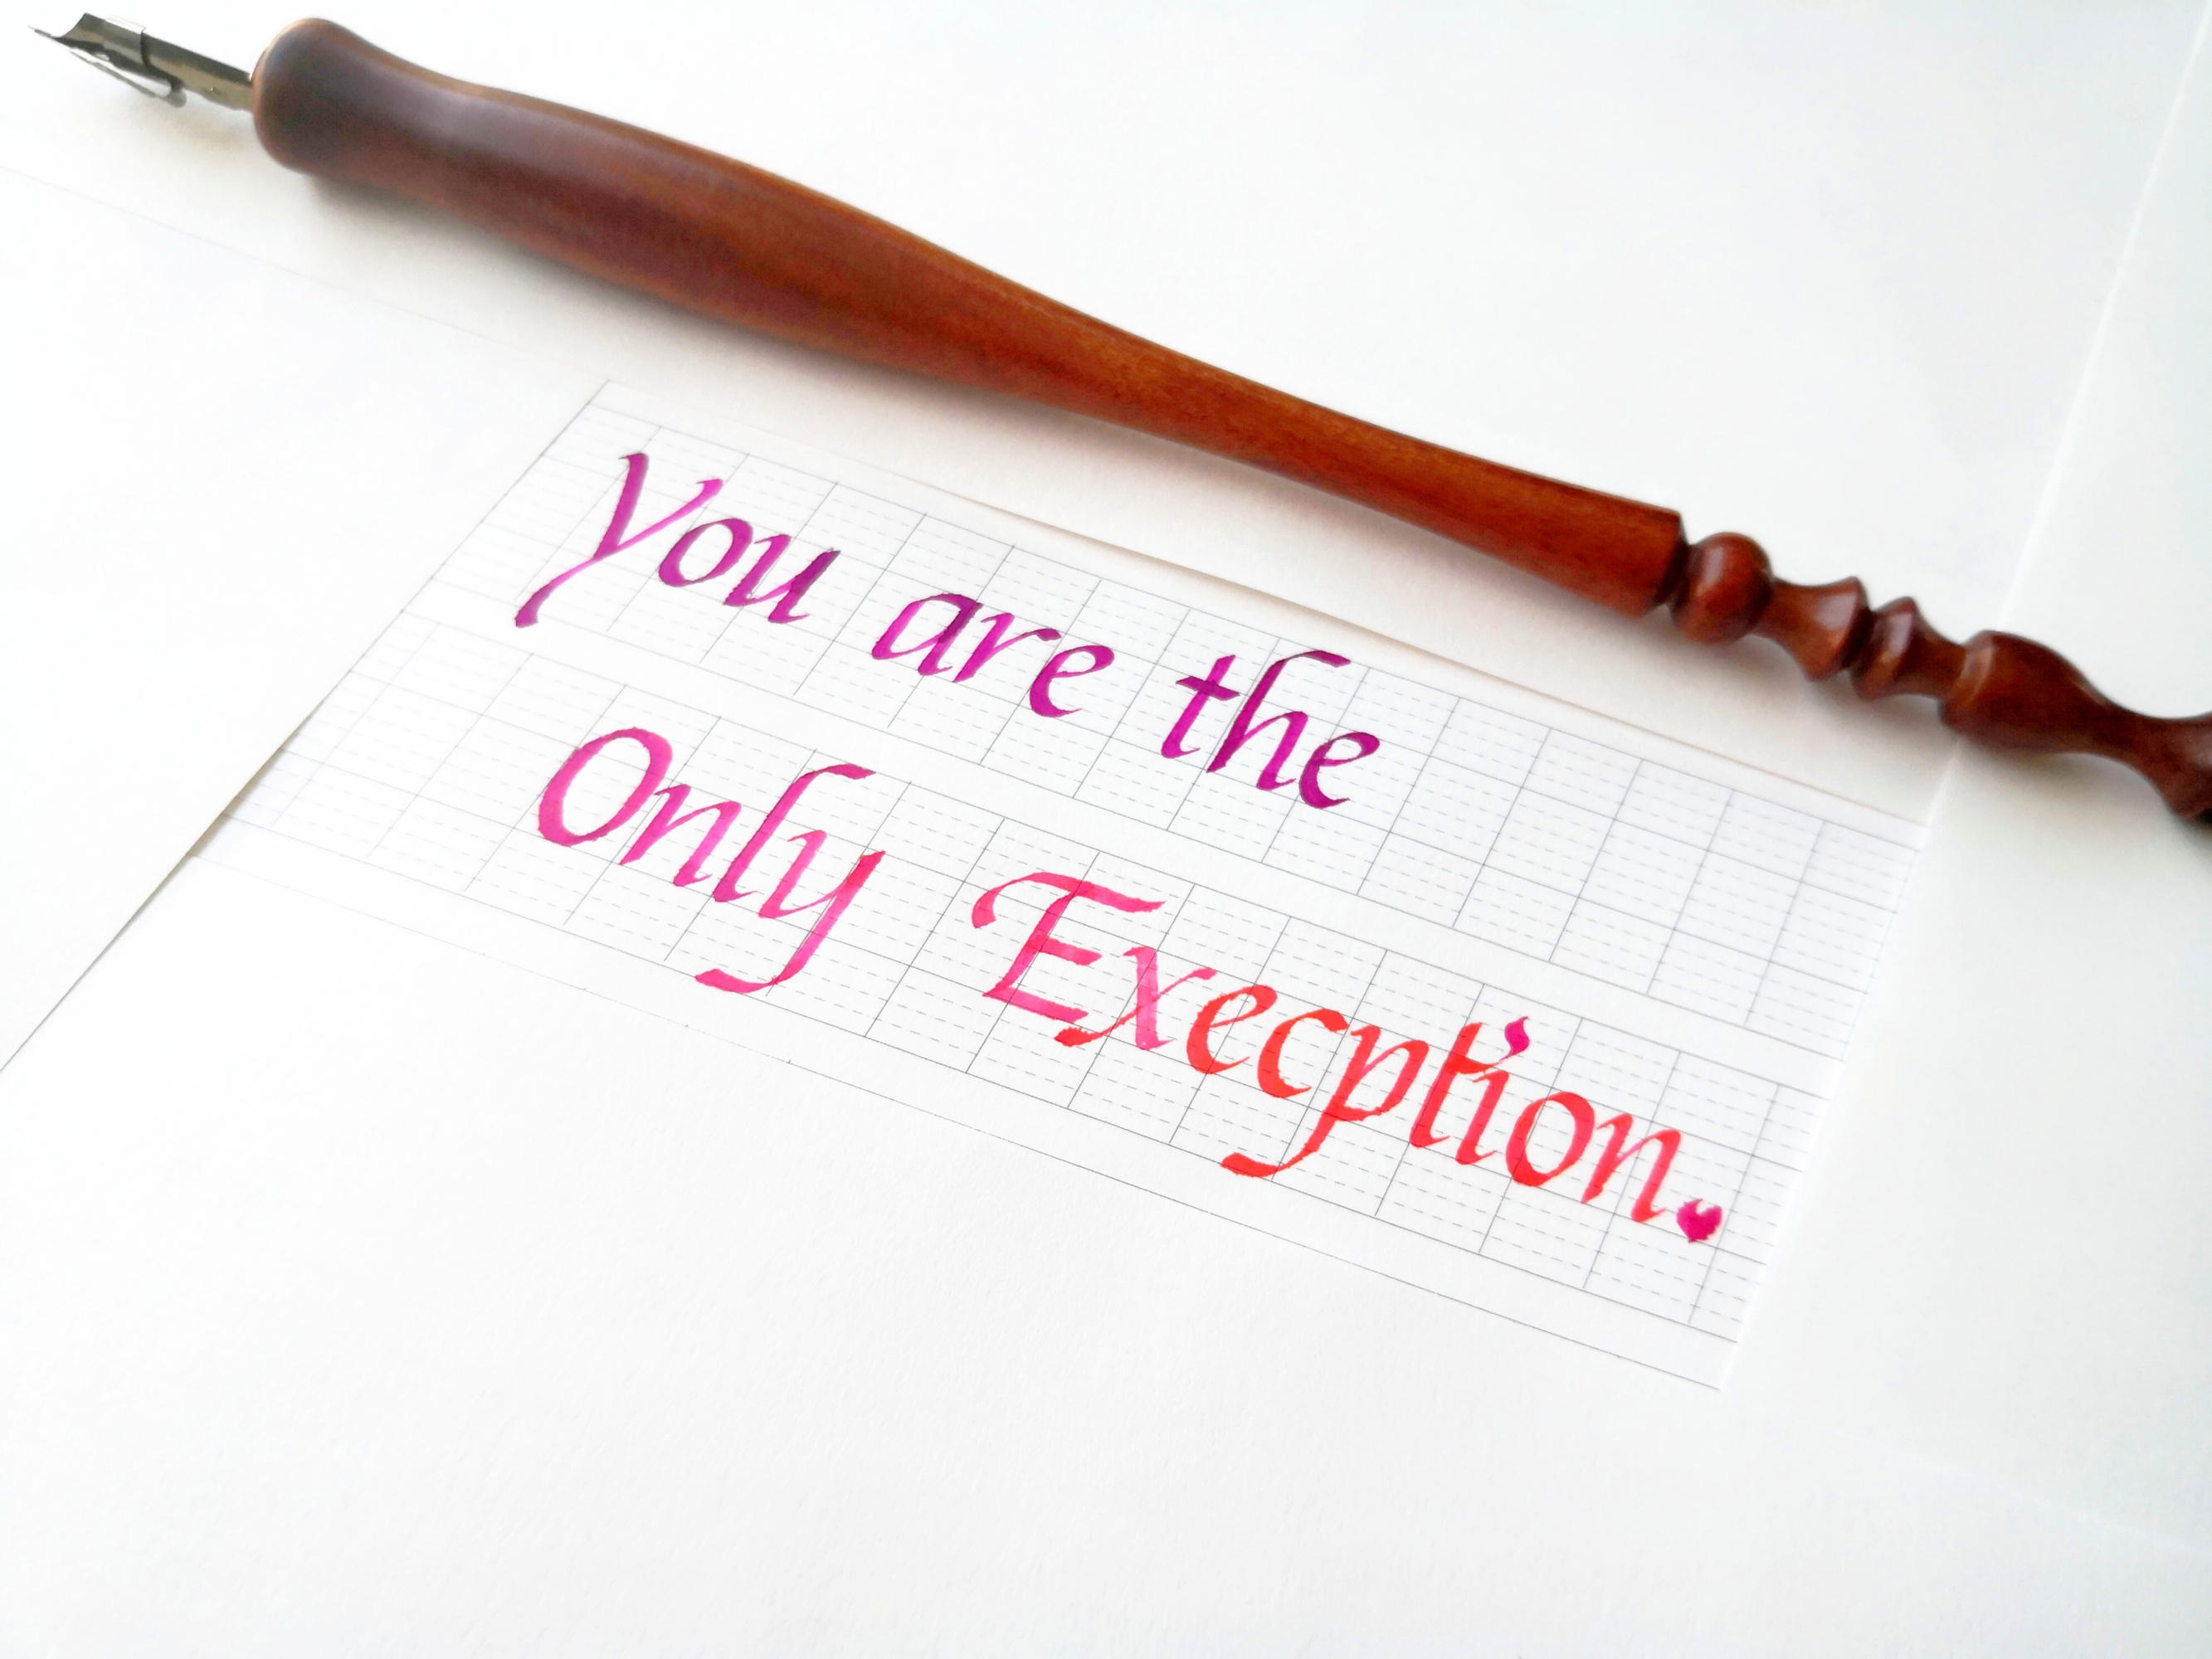 You are the
Only Execption.